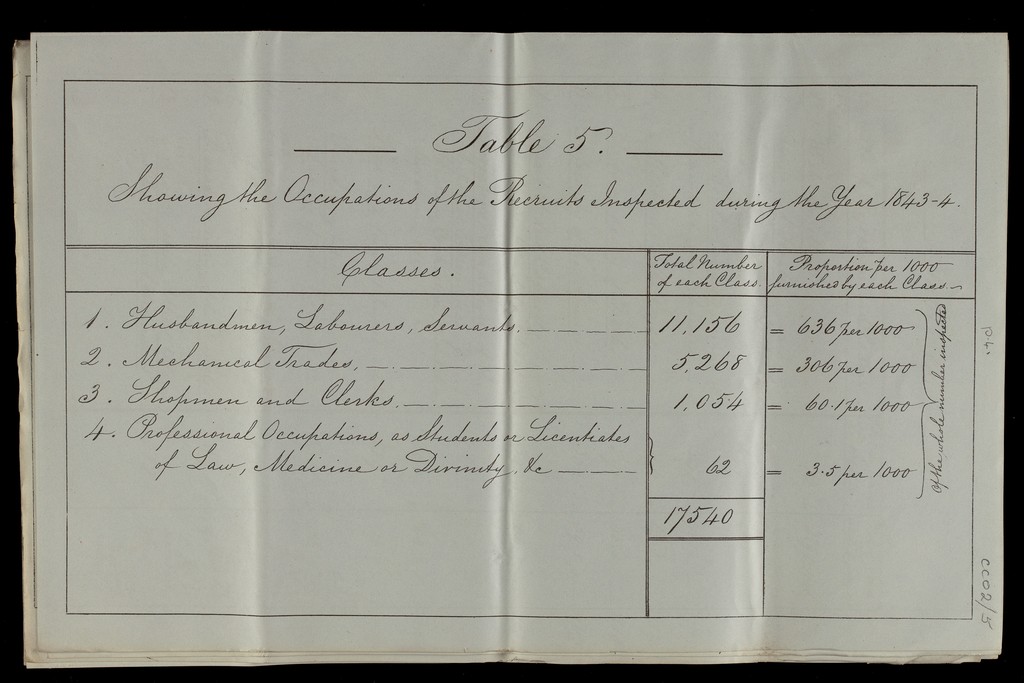 Table 5.
Showing the Occupations of the Recruits Inspected during the Year 1843-4.
Classes.
Total Number of each Class.
Proportion per 1000 furnished by each Class.
1. Husbandmen, Labourers, Servants. 11,156 = 636 per 1000
2. Mechanical Trades, 5,268 = 306 per 1000
3. Shopmen and Clerks. 1,054 = 60.1 per 1000
4. Professional Occupations, as Students or Licentiates
of Law, Medicine or Divinity &c 62 = 3.5 per 1000
of the whole number inspected
17540
CC02/5